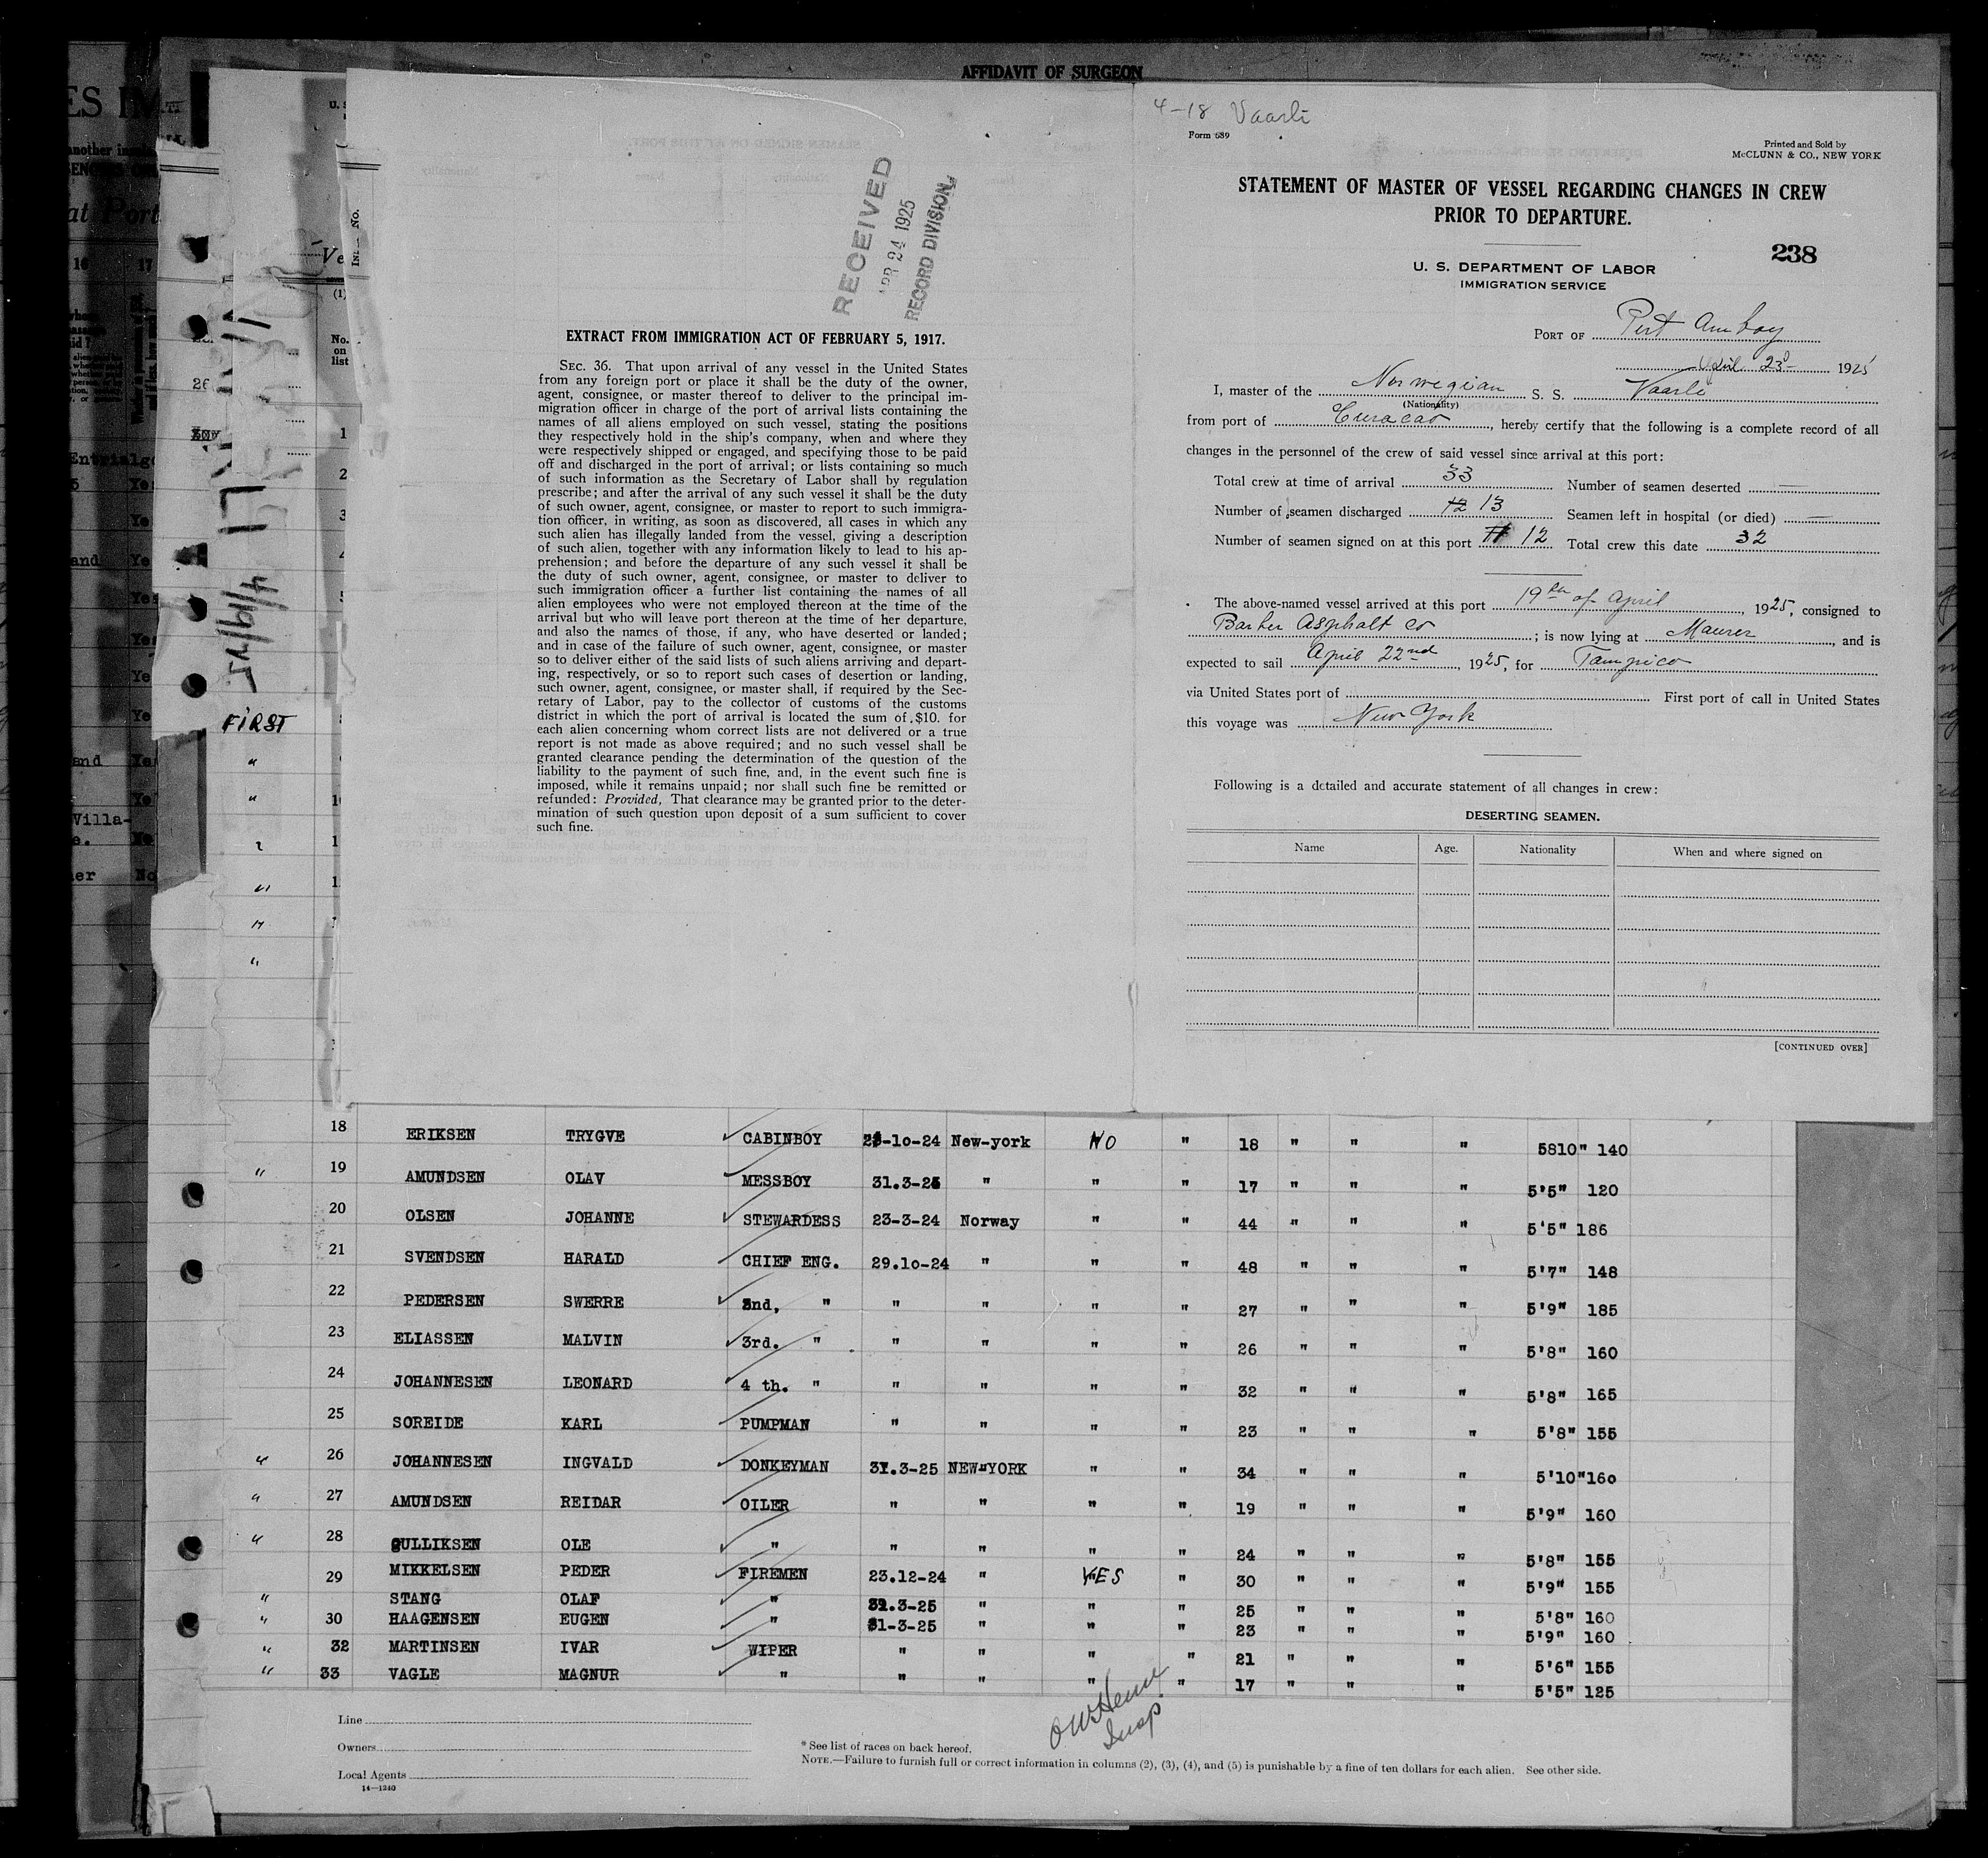 AFFIDAVIT OF SURGEON
ES IM
another
at Port
16 17
and
Villa-
FIRST
No. on list
RECEIVED
APR 24 1925
RECORD DIVISION
EXTRACT FROM IMMIGRATION ACT OF FEBRUARY 5, 1917.
SEC. 36. That upon arrival of any vessel in the United States
from any foreign port or place it shall be the duty of the owner,
agent, consignee, or master thereof to deliver to the principal im-
migration officer in charge of the port of arrival lists containing the
names of all aliens employed on such vessel, stating the positions
they respectively hold in the ship's company, when and where they
were respectively shipped or engaged, and specifying those to be paid
off and discharged in the port of arrival; or lists containing so much
of such information as the Secretary of Labor shall by regulation
prescribe; and after the arrival of any such vessel it shall be the duty
of such owner, agent, consignee, or master to report to such immigra-
tion officer, in writing, as soon as discovered, all cases in which any
such alien has illegally landed from the vessel, giving a description
of such alien, together with any information likely to lead to his ap-
prehension; and before the departure of any such vessel it shall be
the duty of such owner, agent, consignee, or master to deliver to
such immigration officer a further list containing the names of all
alien employees who were not employed thereon at the time of the
arrival but who will leave port thereon at the time of her departure,
and also the names of those, if any, who have deserted or landed;
and in case of the failure of such owner, agent, consignee, or master
so to deliver either of the said lists of such aliens arriving and depart-
ing, respectively, or so to report such cases of desertion or landing,
such owner, agent, consignee, or master shall, if required by the Sec-
retary of Labor, pay to the collector of customs of the customs
district in which the port of arrival is located the sum of $10. for
each alien concerning whom correct lists are not delivered or a true
report is not made as above required; and no such vessel shall be
granted clearance pending the determination of the question of the
liability to the payment of such fine, and, in the event such fine is
imposed, while it remains unpaid; nor shall such fine be remitted or
refunded: Provided, That clearance may be granted prior to the deter-
mination of such question upon deposit of a sum sufficient to cover
such fine.
4-18 Vaarli
Form 689
Printed and Sold by
McCLUNN & CO., NEW YORK
STATEMENT OF MASTER OF VESSEL REGARDING CHANGES IN CREW
PRIOR TO DEPARTURE.
238
U. S. DEPARTMENT OF LABOR
IMMIGRATION SERVICE
PORT OF Pert Amboy
April 23d 1925
I, master of the Norwegian S. S. Vaarli
(Nationality)
from port of Curacao, hereby certify that the following is a complete record of all
changes in the personnel of the crew of said vessel since arrival at this port:
Total crew at time of arrival 33 Number of seamen deserted —
Number of seamen discharged 12 13 Seamen left in hospital (or died) —
Number of seamen signed on at this port 11 12 Total crew this date 32
The above-named vessel arrived at this port 19th of April, 1925, consigned to
Barber Asphalt Co; is now lying at Maurer, and is
expected to sail April 22nd, 1925, for Tampico
via United States port of First port of call in United States
this voyage was New York
Following is a detailed and accurate statement of all changes in crew:
DESERTING SEAMEN.
Name Age. Nationality When and where signed on
[CONTINUED OVER]
18 ERIKSEN TRYGVE CABINBOY -10-24 New-york NO " 18 " " " 5810" 140
" 19 AMUNDSEN OLAV MESSBOY 31.3-25 " " " 17 " " " 5'5" 120
20 OLSEN JOHANNE STEWARDESS 23-3-24 Norway " " 44 " " " 5'5" 186
21 SVENDSEN HARALD CHIEF ENG. 29.10-24 " " " 48 " " " 5'7" 148
22 PEDERSEN SWERRE 2nd. " " " " " 27 " " " 5'9" 185
23 ELIASSEN MALVIN 3rd. " " " " " 26 " " " 5'8" 160
24 JOHANNESEN LEONARD 4 th. " " " " " 32 " " " 5'8" 165
25 SOREIDE KARL PUMPMAN " " " " 23 " " " 5'8" 155
" 26 JOHANNESEN INGVALD DONKEYMAN 31.3-25 NEW-YORK " " 34 " " " 5'10" 160
" 27 AMUNDSEN REIDAR OILER " " " " 19 " " " 5'9" 160
" 28 GULLIKSEN OLE " " " " " 24 " " " 5'8" 155
29 MIKKELSEN PEDER FIREMEN 23.12-24 " YES " 30 " " " 5'9" 155
" STANG OLAF " 31.3-25 " " " 25 " " " 5'8" 160
" 30 HAAGENSEN EUGEN " 31-3-25 " " " 23 " " " 5'9" 160
" 32 MARTINSEN IVAR WIPER " " " " 21 " " " 5'6" 155
" 33 VAGLE MAGNUR " " " " " 17 " " " 5'5" 125
Line
Owners
Local Agents
14—1240
* See list of races on back hereof.
NOTE.—Failure to furnish full or correct information in columns (2), (3), (4), and (5) is punishable by a fine of ten dollars for each alien. See other side.
Insp